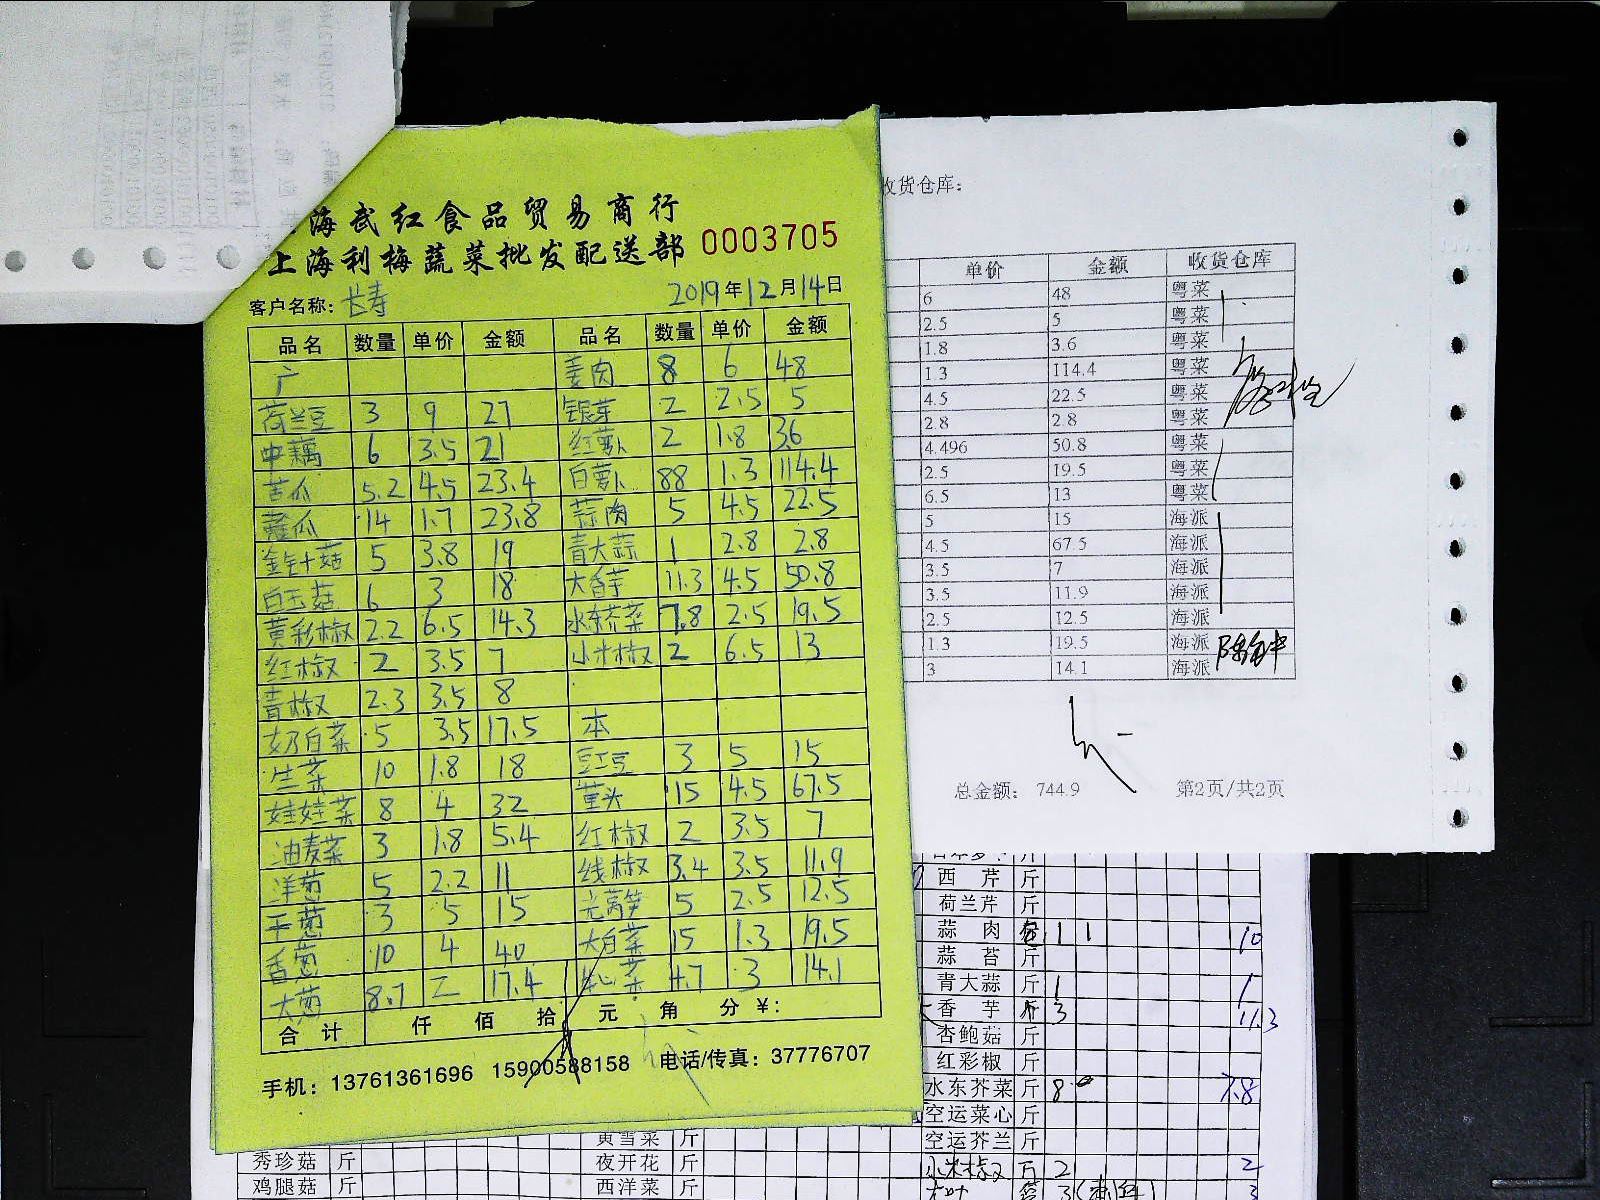 海武红食品贸易商行
上海利梅蔬菜批发配送部 0003705
客户名称: 长寿 2019年12月14日
品名 数量 单价 金额 品名 数量 单价 金额
广 姜肉 8 6 48
荷兰豆 3 9 27 银芽 2 2.5 5
中藕 6 3.5 21 红萝卜 2 1.8 3.6
苦瓜 5.2 4.5 23.4 白萝卜 88 1.3 114.4
瓜 14 1.7 23.8 蒜肉 5 4.5 22.5
金针菇 5 3.8 19 青大蒜 1 2.8 2.8
白玉菇 6 3 18 大香芋 11.3 4.5 50.8
黄彩椒 2.2 6.5 14.3 水东芥菜 7.8 2.5 19.5
红椒 2 3.5 7 小米椒 2 6.5 13
青椒 2.3 3.5 8
奶白菜 5 3.5 17.5 本
生菜 10 1.8 18 豇豆 3 5 15
娃娃菜 8 4 32 头 15 4.5 67.5
油麦菜 3 1.8 5.4 红椒 2 3.5 7
洋葱 5 2.2 11 线椒 3.4 3.5 11.9
干葱 3 5 15 光莴笋 5 2.5 12.5
香葱 10 4 40 大白菜 15 1.3 19.5
大葱 8.7 2 17.4 心菜 4.7 3 14.1
合计 仟 佰 拾 元 角 分 ¥:
手机: 13761361696 15900588158 电话/传真: 37776707
收货仓库:
单价 金额 收货仓库
6 48 粤菜
2.5 5 粤菜
1.8 3.6 粤菜
1.3 114.4 粤菜
4.5 22.5 粤菜
2.8 2.8 粤菜
4.496 50.8 粤菜
2.5 19.5 粤菜
6.5 13 粤菜
5 15 海派
4.5 67.5 海派
3.5 7 海派
3.5 11.9 海派
2.5 12.5 海派
1.3 19.5 海派
3 14.1 海派
总金额: 744.9 第2页/共2页
西芹 斤
荷兰芹 斤
蒜肉 1 1 10
蒜苔 斤
青大蒜 斤 1 1
香芋 斤 3 11.3
杏鲍菇 斤
红彩椒 斤
水东芥菜 斤 8 7.8
空运菜心 斤
空运芥兰 斤
小米椒 斤 2 2
黄雪菜 斤
秀珍菇 斤 夜开花 斤
鸡腿菇 斤 西洋菜 斤